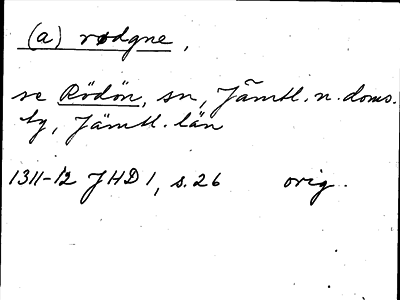 (a) rødgne,
se Rödön, sn, Jämtl. n. doms.
bg, Jämtl. län
1311-12 JHD 1, s. 26 orig.